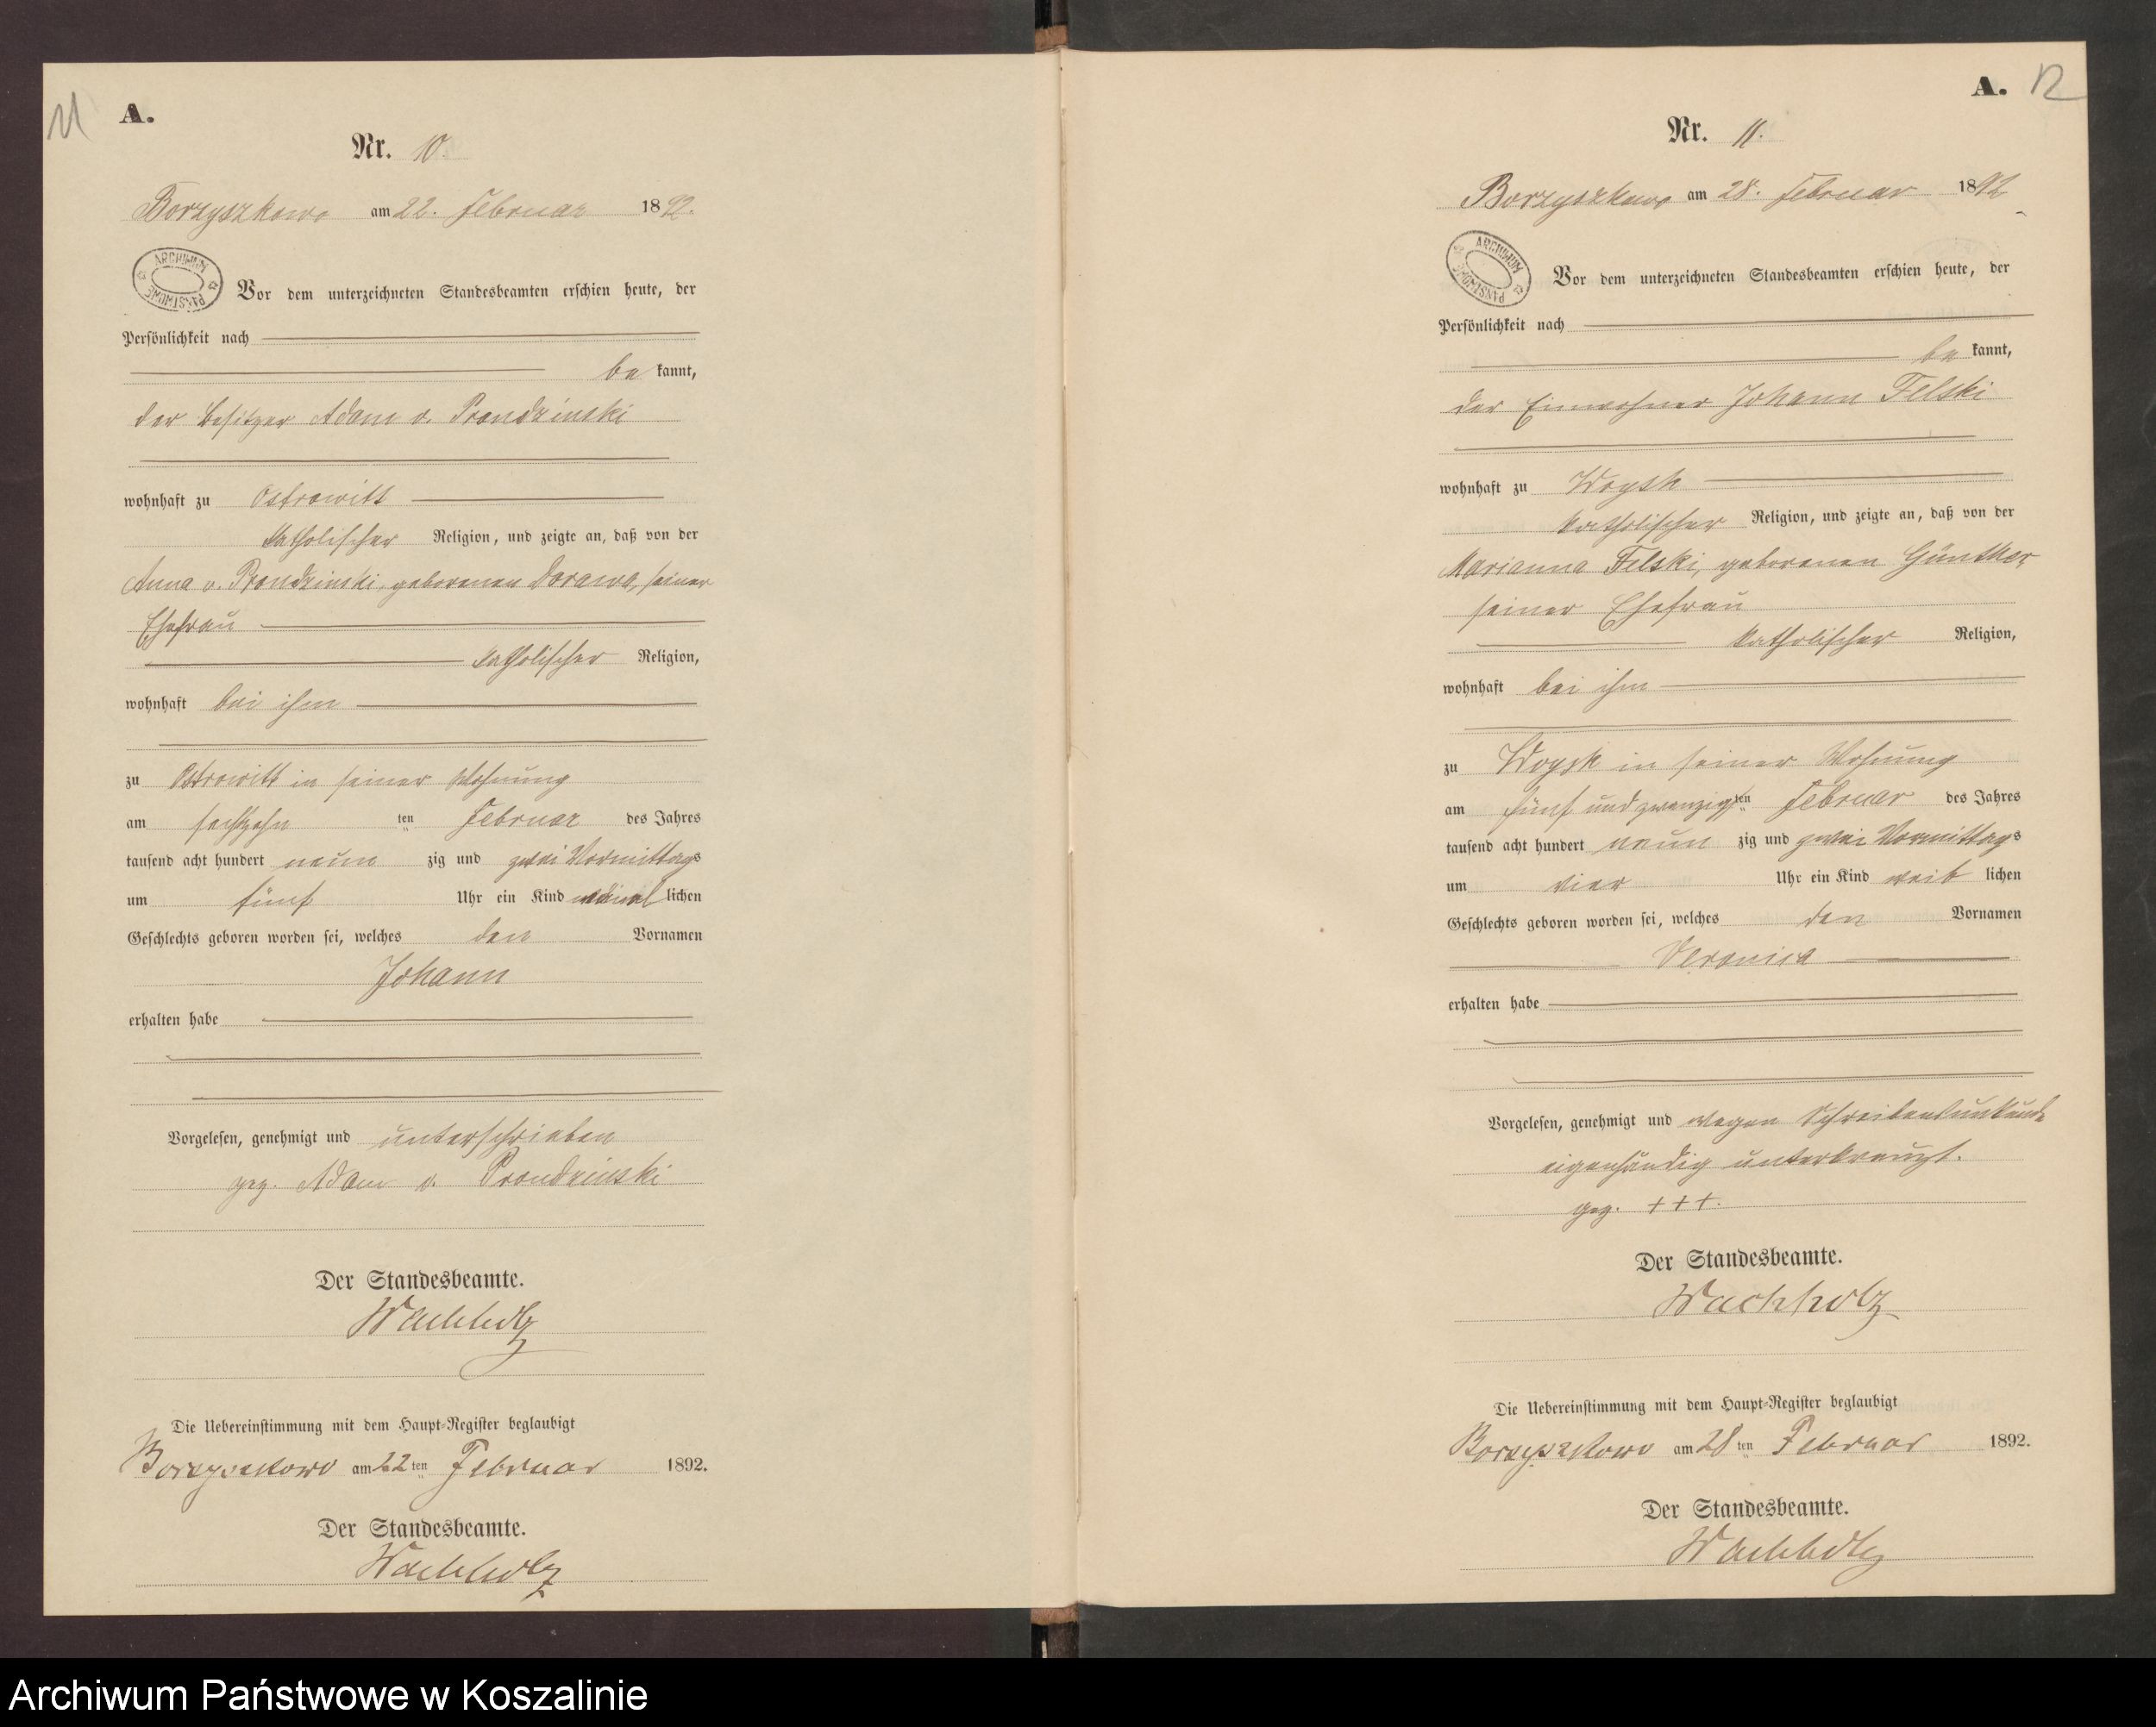 11
A.
Nr. 10.
Borzyszkowo am 22. Februar 1892.
ARCHIWUM PAŃSTWOWE
Vor dem unterzeichneten Standesbeamten erschien heute, der
Persönlichkeit nach
be kannt,
der Besitzer Adam v. Prondzinski
wohnhaft zu Ostrowitt
katholischer Religion, und zeigte an, daß von der
Anna v. Prondzinski, geborenen Dorawa, seiner
Ehefrau
katholischer Religion,
wohnhaft bei ihm
zu Ostrowitt in seiner Wohnung
am sechszehn ten Februar des Jahres
tausend acht hundert neun zig und zwei Vormittags
um fünf Uhr ein Kind männ lichen
Geschlechts geboren worden sei, welches den Vornamen
Johann
erhalten habe
Vorgelesen, genehmigt und unterschrieben
gez. Adam v. Prondzinski
Der Standesbeamte.
Wachholz
Die Uebereinstimmung mit dem Haupt-Register beglaubigt
Borzyszkowo am 22 ten Februar 1892.
Der Standesbeamte.
Wachholz
A. 12
Nr. 11.
Borzyszkowo am 28. Februar 1892
ARCHIWUM PAŃSTWOWE
Vor dem unterzeichneten Standesbeamten erschien heute, der
Persönlichkeit nach
be kannt,
der Einwohner Johann Felski
wohnhaft zu Woysk
katholischer Religion, und zeigte an, daß von der
Marianna Felski, geborenen Günther,
seiner Ehefrau
katholischer Religion,
wohnhaft bei ihm
zu Woysk in seiner Wohnung
am fünf und zwanzigsten Februar des Jahres
tausend acht hundert neun zig und zwei Vormittags
um vier Uhr ein Kind weib lichen
Geschlechts geboren worden sei, welches den Vornamen
Veronica
erhalten habe
Vorgelesen, genehmigt und wegen Schreibensunkunde
eigenhändig unterkreuzt.
gez. +++.
Der Standesbeamte.
Wachholz
Die Uebereinstimmung mit dem Haupt-Register beglaubigt
Borzyszkowo am 28 ten Februar 1892.
Der Standesbeamte.
Wachholz
Archiwum Państwowe w Koszalinie